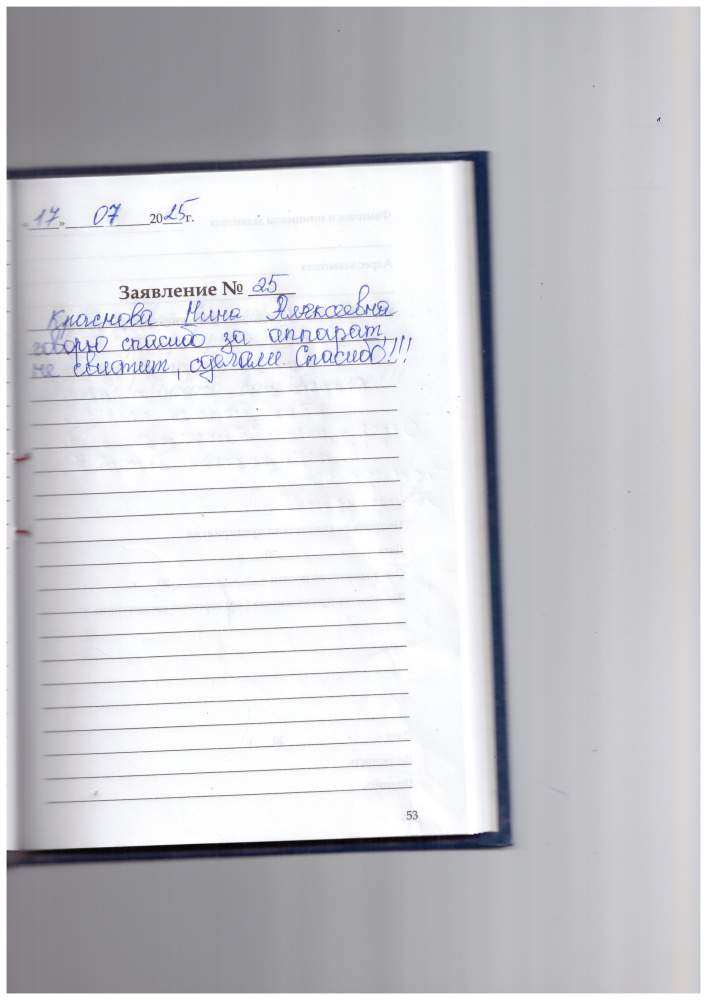 «17» 07 2025 г.
Заявление № 25
Краснова Нина Алексеевна
говорю спасибо за аппарат,
не свистит, сделали. Спасибо!!!
53